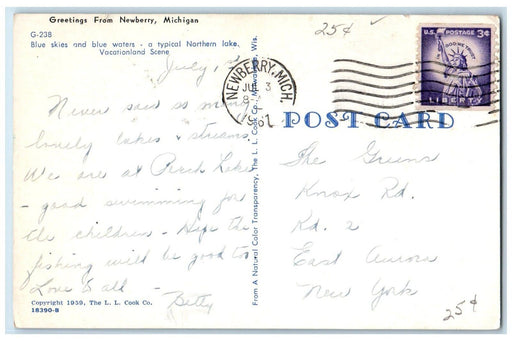 Greetings From Newberry, Michigan
25¢
G-238
Blue skies and blue waters - a typical Northern lake.
Vacationland Scene
July,
Never saw so many
lovely lakes & streams
We are at Perch Lake
- good swimming for
the children - Hope the
fishing will be good too
Love to all -
Betty
Copyright 1959, The L. L. Cook Co.
18390-B
From A Natural Color Transparency, The L. L. Cook Co., Milwaukee, Wis.
NEWBERRY, MICH.
JUL 3
1961
U.S. POSTAGE 3¢
IN GOD WE TRUST
LIBERTY
POST CARD
The Greens
Knox Rd.
Rd. 2
East Aurora
New York
25¢